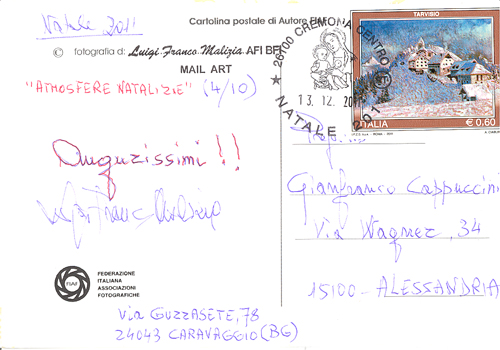 Natale 2011
Cartolina postale di Autore
© fotografia di: Luigi Franco Malizia AFI BFI
MAIL ART
"ATMOSFERE NATALIZIE" (4/10)
Auguzissimi!!
FIAF
FEDERAZIONE
ITALIANA
ASSOCIAZIONI
FOTOGRAFICHE
Via GUZZASETE, 78
24043 CARAVAGGIO (BG)
26100 CREMONA CENTRO
13.12.20
NATALE 201
TARVISIO
ITALIA
€ 0,60
Gianfranco Cappuccini
Via Wagner, 34
15100 - ALESSANDRIA